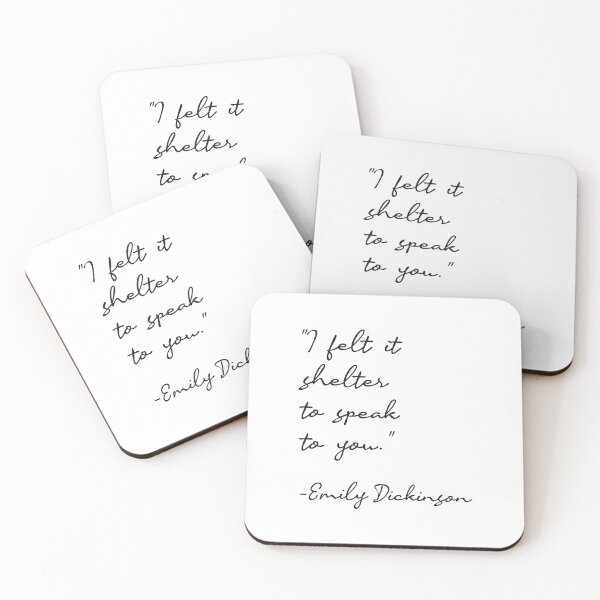 "I felt it
shelter
to
"I felt it
shelter
to speak
to you."
"I felt it
shelter
to speak
to you."
-Emily
"I felt it
shelter
to speak
to you."
-Emily Dickinson